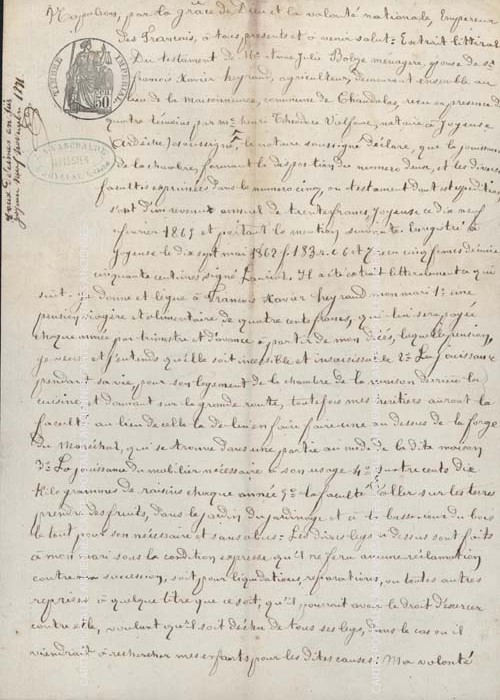 Napoléon, par la grâce de Dieu et la volonté nationale, Empereur
des Français, à tous présents et à venir salut: Extrait littéral
Du testament de Me Anne Julie ménagere, épouse de Sr
françois Xavier heyraud, agriculteur, demeurant ensemble au
lieu de la commune de Chandolas, reçu en présence de
quatre témoins, par me henri Théodore notaire à Joyeuse
Ardèche, soussigné, le notaire soussigné déclare, que la jouissance
de la chambre, formant la disposition du numero deux, et les diverses
facultés exprimées dans le numero cinq, du testament dont expédition
sont d'un revenu annuel de trente francs, Joyeuse ce dix neuf
février 1869 et portant la mention suivante. Enregistré à
Joyeuse le dix sept mai 1862 f. 183 r. c 6 et 7, reçu cinq francs décime
cinquante centimes signé Il a été extrait littéralement ce qui
suit: Je donne et lègue à François Xavier heyraud mon mari 1° une
pension viagère et alimentaire de quatre cents francs, qui lui sera payée
chaque année par trimestre et d'avance à partir de mon décès, laquelle pension,
je veux et j'entends qu'elle soit incessible et insaisissable 2° La Jouissance
pendant sa vie, pour son logement de la chambre de la maison derrière la
cuisine et donnant sur la grande route, toutefois mes héritiers auront la
faculté au lieu de celle la de lui en faire faire une au dessus de la forge
du Maréchal, qui se trouve dans une partie au midi de la dite maison
3° La jouissance du mobilier nécessaire à son usage 4° quatre cents dix
Kilogrammes de raisins chaque année 5° la faculté d'aller sur les terres
prendre des fruits, dans le jardin du jardinage et à la basse cour du bois
le tout pour son nécessaire et sans abus: Les divers legs ci dessus sont faits
à mon mari sous la condition expresse, qu'il ne fera aucune réclamation
contre ma succession, soit pour liquidations, réparations, ou toutes autres
reprises à quelque titre que ce soit, qu'il pourrait avoir le droit d'exercer
contre elle, voulant qu'il soit déchu de tous ses legs, dans le cas où il
viendrait à rechercher mes enfants pour les dites causes: Ma volonté
TIMBRE IMPERIAL
50